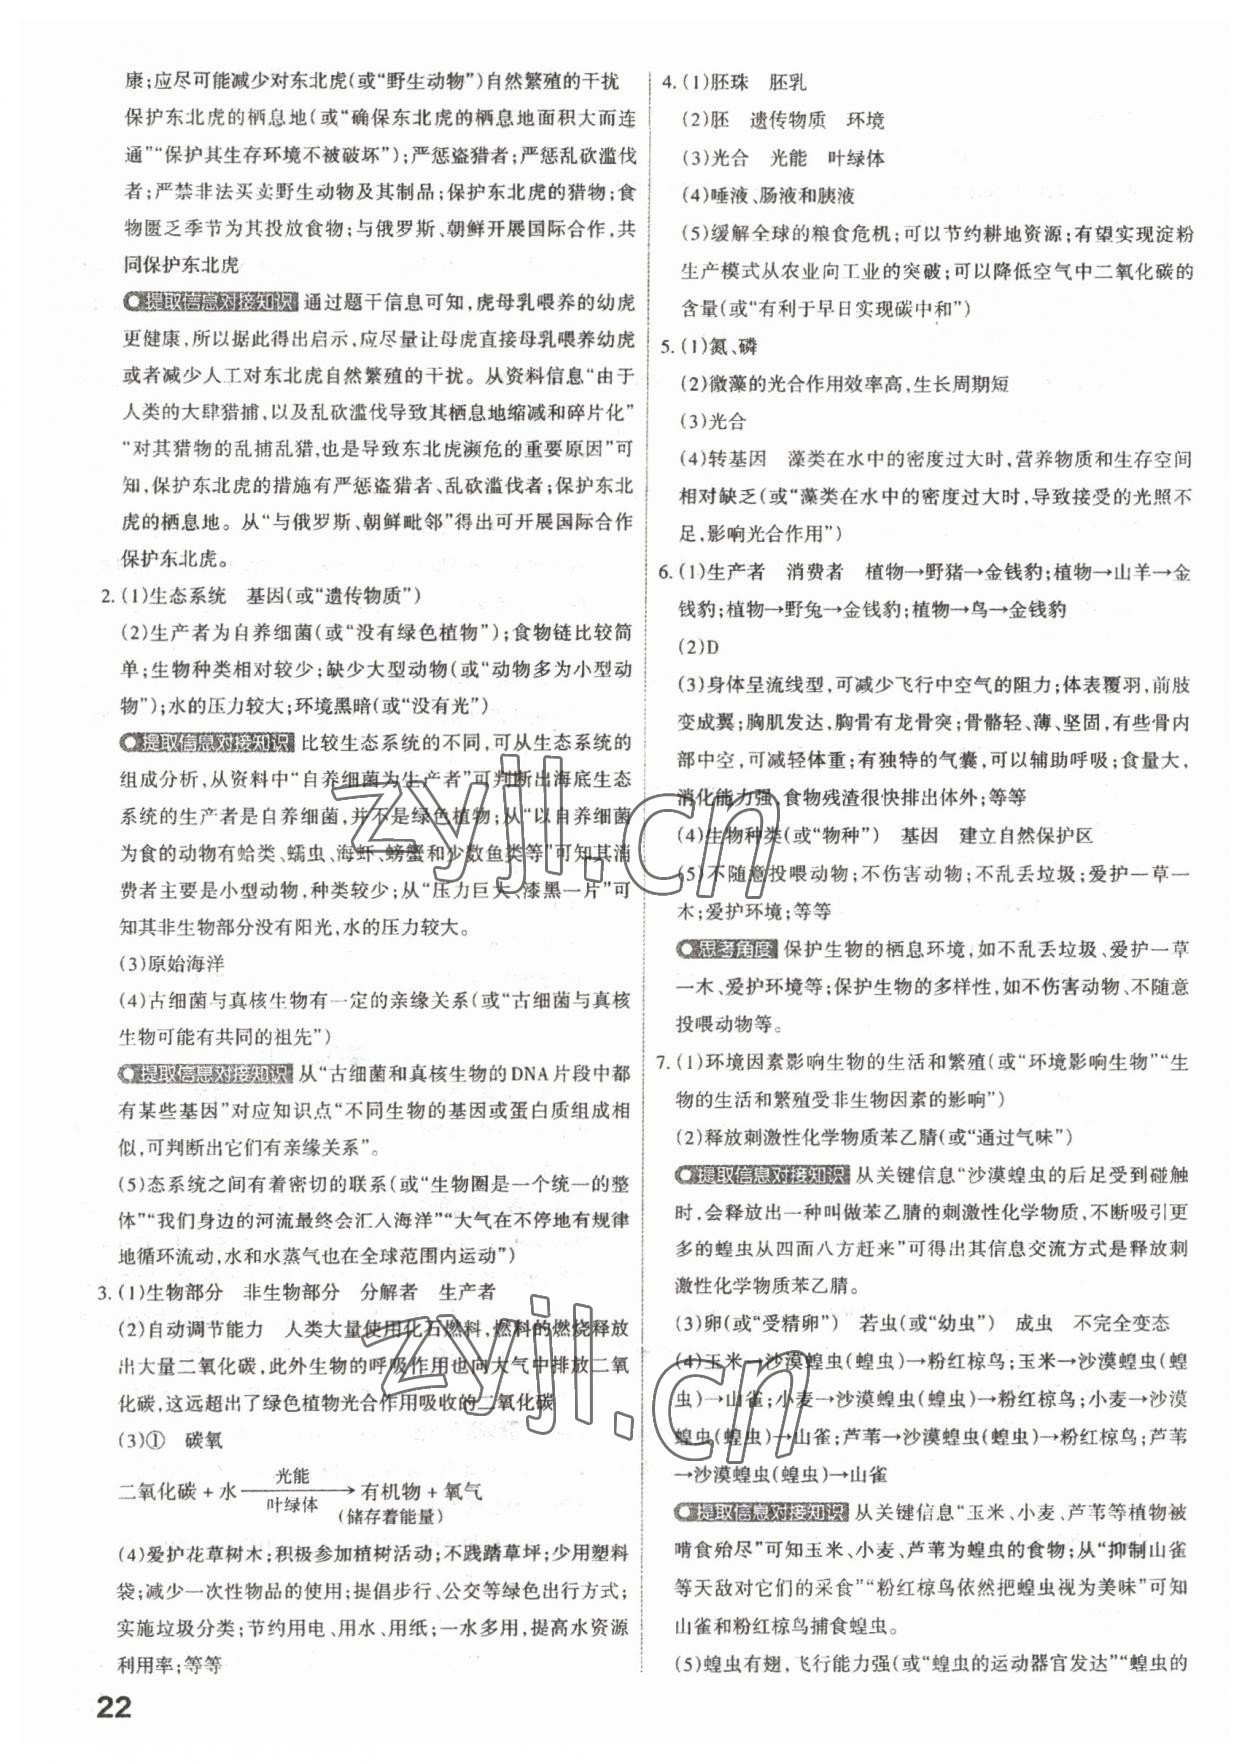 康;应尽可能减少对东北虎(或“野生动物”)自然繁殖的干扰
保护东北虎的栖息地(或“确保东北虎的栖息地面积大而连
通”“保护其生存环境不被破坏”);严惩盗猎者;严惩乱砍滥伐
者;严禁非法买卖野生动物及其制品;保护东北虎的猎物;食
物匮乏季节为其投放食物;与俄罗斯、朝鲜开展国际合作,共
同保护东北虎
提取信息对接知识 通过题干信息可知,虎母乳喂养的幼虎
更健康,所以据此得出启示,应尽量让母虎直接母乳喂养幼虎
或者减少人工对东北虎自然繁殖的干扰。从资料信息“由于
人类的大肆猎捕,以及乱砍滥伐导致其栖息地缩减和碎片化”
“对其猎物的乱捕乱猎,也是导致东北虎濒危的重要原因”可
知,保护东北虎的措施有严惩盗猎者、乱砍滥伐者;保护东北
虎的栖息地。从“与俄罗斯、朝鲜毗邻”得出可开展国际合作
保护东北虎。
2. (1)生态系统 基因(或“遗传物质”)
(2)生产者为自养细菌(或“没有绿色植物”);食物链比较简
单;生物种类相对较少;缺少大型动物(或“动物多为小型动
物”);水的压力较大;环境黑暗(或“没有光”)
提取信息对接知识 比较生态系统的不同,可从生态系统的
组成分析,从资料中“自养细菌为生产者”可判断出海底生态
系统的生产者是自养细菌,并不是绿色植物;从“以自养细菌
为食的动物有蛤类、蠕虫、海虾、螃蟹和少数鱼类等”可知其消
费者主要是小型动物,种类较少;从“压力巨大、漆黑一片”可
知其非生物部分没有阳光,水的压力较大。
(3)原始海洋
(4)古细菌与真核生物有一定的亲缘关系(或“古细菌与真核
生物可能有共同的祖先”)
提取信息对接知识 从“古细菌和真核生物的DNA片段中都
有某些基因”对应知识点“不同生物的基因或蛋白质组成相
似,可判断出它们有亲缘关系”。
(5)态系统之间有着密切的联系(或“生物圈是一个统一的整
体”“我们身边的河流最终会汇入海洋”“大气在不停地有规律
地循环流动,水和水蒸气也在全球范围内运动”)
3. (1)生物部分 非生物部分 分解者 生产者
(2)自动调节能力 人类大量使用化石燃料,燃料的燃烧释放
出大量二氧化碳,此外生物的呼吸作用也向大气中排放二氧
化碳,这远超出了绿色植物光合作用吸收的二氧化碳
(3)① 碳氧
二氧化碳+水 光能 叶绿体 → 有机物+氧气
(储存着能量)
(4)爱护花草树木;积极参加植树活动;不践踏草坪;少用塑料
袋;减少一次性物品的使用;提倡步行、公交等绿色出行方式;
实施垃圾分类;节约用电、用水、用纸;一水多用,提高水资源
利用率;等等
22
4. (1)胚珠 胚乳
(2)胚 遗传物质 环境
(3)光合 光能 叶绿体
(4)唾液、肠液和胰液
(5)缓解全球的粮食危机;可以节约耕地资源;有望实现淀粉
生产模式从农业向工业的突破;可以降低空气中二氧化碳的
含量(或“有利于早日实现碳中和”)
5. (1)氮、磷
(2)微藻的光合作用效率高,生长周期短
(3)光合
(4)转基因 藻类在水中的密度过大时,营养物质和生存空间
相对缺乏(或“藻类在水中的密度过大时,导致接受的光照不
足,影响光合作用”)
6. (1)生产者 消费者 植物→野猪→金钱豹;植物→山羊→金
钱豹;植物→野兔→金钱豹;植物→鸟→金钱豹
(2)D
(3)身体呈流线型,可减少飞行中空气的阻力;体表覆羽,前肢
变成翼;胸肌发达,胸骨有龙骨突;骨骼轻、薄、坚固,有些骨内
部中空,可减轻体重;有独特的气囊,可以辅助呼吸;食量大,
消化能力强,食物残渣很快排出体外;等等
(4)生物种类(或“物种”) 基因 建立自然保护区
(5)不随意投喂动物;不伤害动物;不乱丢垃圾;爱护一草一
木;爱护环境;等等
思考角度 保护生物的栖息环境,如不乱丢垃圾、爱护一草
一木、爱护环境等;保护生物的多样性,如不伤害动物、不随意
投喂动物等。
7. (1)环境因素影响生物的生活和繁殖(或“环境影响生物”“生
物的生活和繁殖受非生物因素的影响”)
(2)释放刺激性化学物质苯乙腈(或“通过气味”)
提取信息对接知识 从关键信息“沙漠蝗虫的后足受到碰触
时,会释放出一种叫做苯乙腈的刺激性化学物质,不断吸引更
多的蝗虫从四面八方赶来”可得出其信息交流方式是释放刺
激性化学物质苯乙腈。
(3)卵(或“受精卵”) 若虫(或“幼虫”) 成虫 不完全变态
(4)玉米→沙漠蝗虫(蝗虫)→粉红椋鸟;玉米→沙漠蝗虫(蝗
虫)→山雀;小麦→沙漠蝗虫(蝗虫)→粉红椋鸟;小麦→沙漠
蝗虫(蝗虫)→山雀;芦苇→沙漠蝗虫(蝗虫)→粉红椋鸟;芦苇
→沙漠蝗虫(蝗虫)→山雀
提取信息对接知识 从关键信息“玉米、小麦、芦苇等植物被
啃食殆尽”可知玉米、小麦、芦苇为蝗虫的食物;从“抑制山雀
等天敌对它们的采食”“粉红椋鸟依然把蝗虫视为美味”可知
山雀和粉红椋鸟捕食蝗虫。
(5)蝗虫有翅,飞行能力强(或“蝗虫的运动器官发达”“蝗虫的
zyjl.cn
zyjl.cn